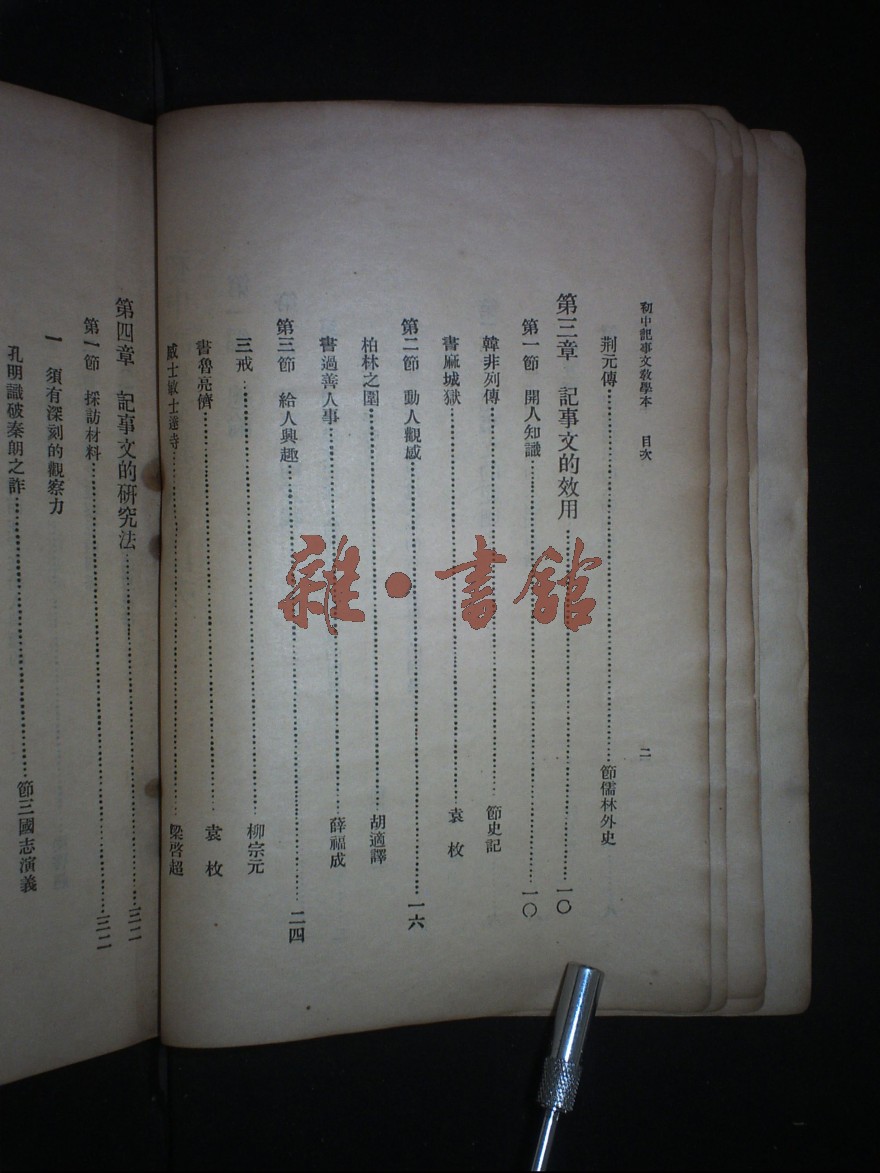 初中記事文敎學本 目次 二
荆元傳 節儒林外史
第三章 記事文的效用 一〇
第一節 開人知識 一〇
韓非列傳 節史記
書麻城獄 袁枚
第二節 動人觀感 一六
柏林之圍 胡適譯
書過善人事 薛福成
第三節 給人興趣 二四
三戒 柳宗元
書魯亮儕 袁枚
威士敏士達寺 梁啓超
第四章 記事文的研究法 三二
第一節 採訪材料 三二
一 須有深刻的觀察力
孔明識破秦朗之詐 節三國志演義
雜·書館